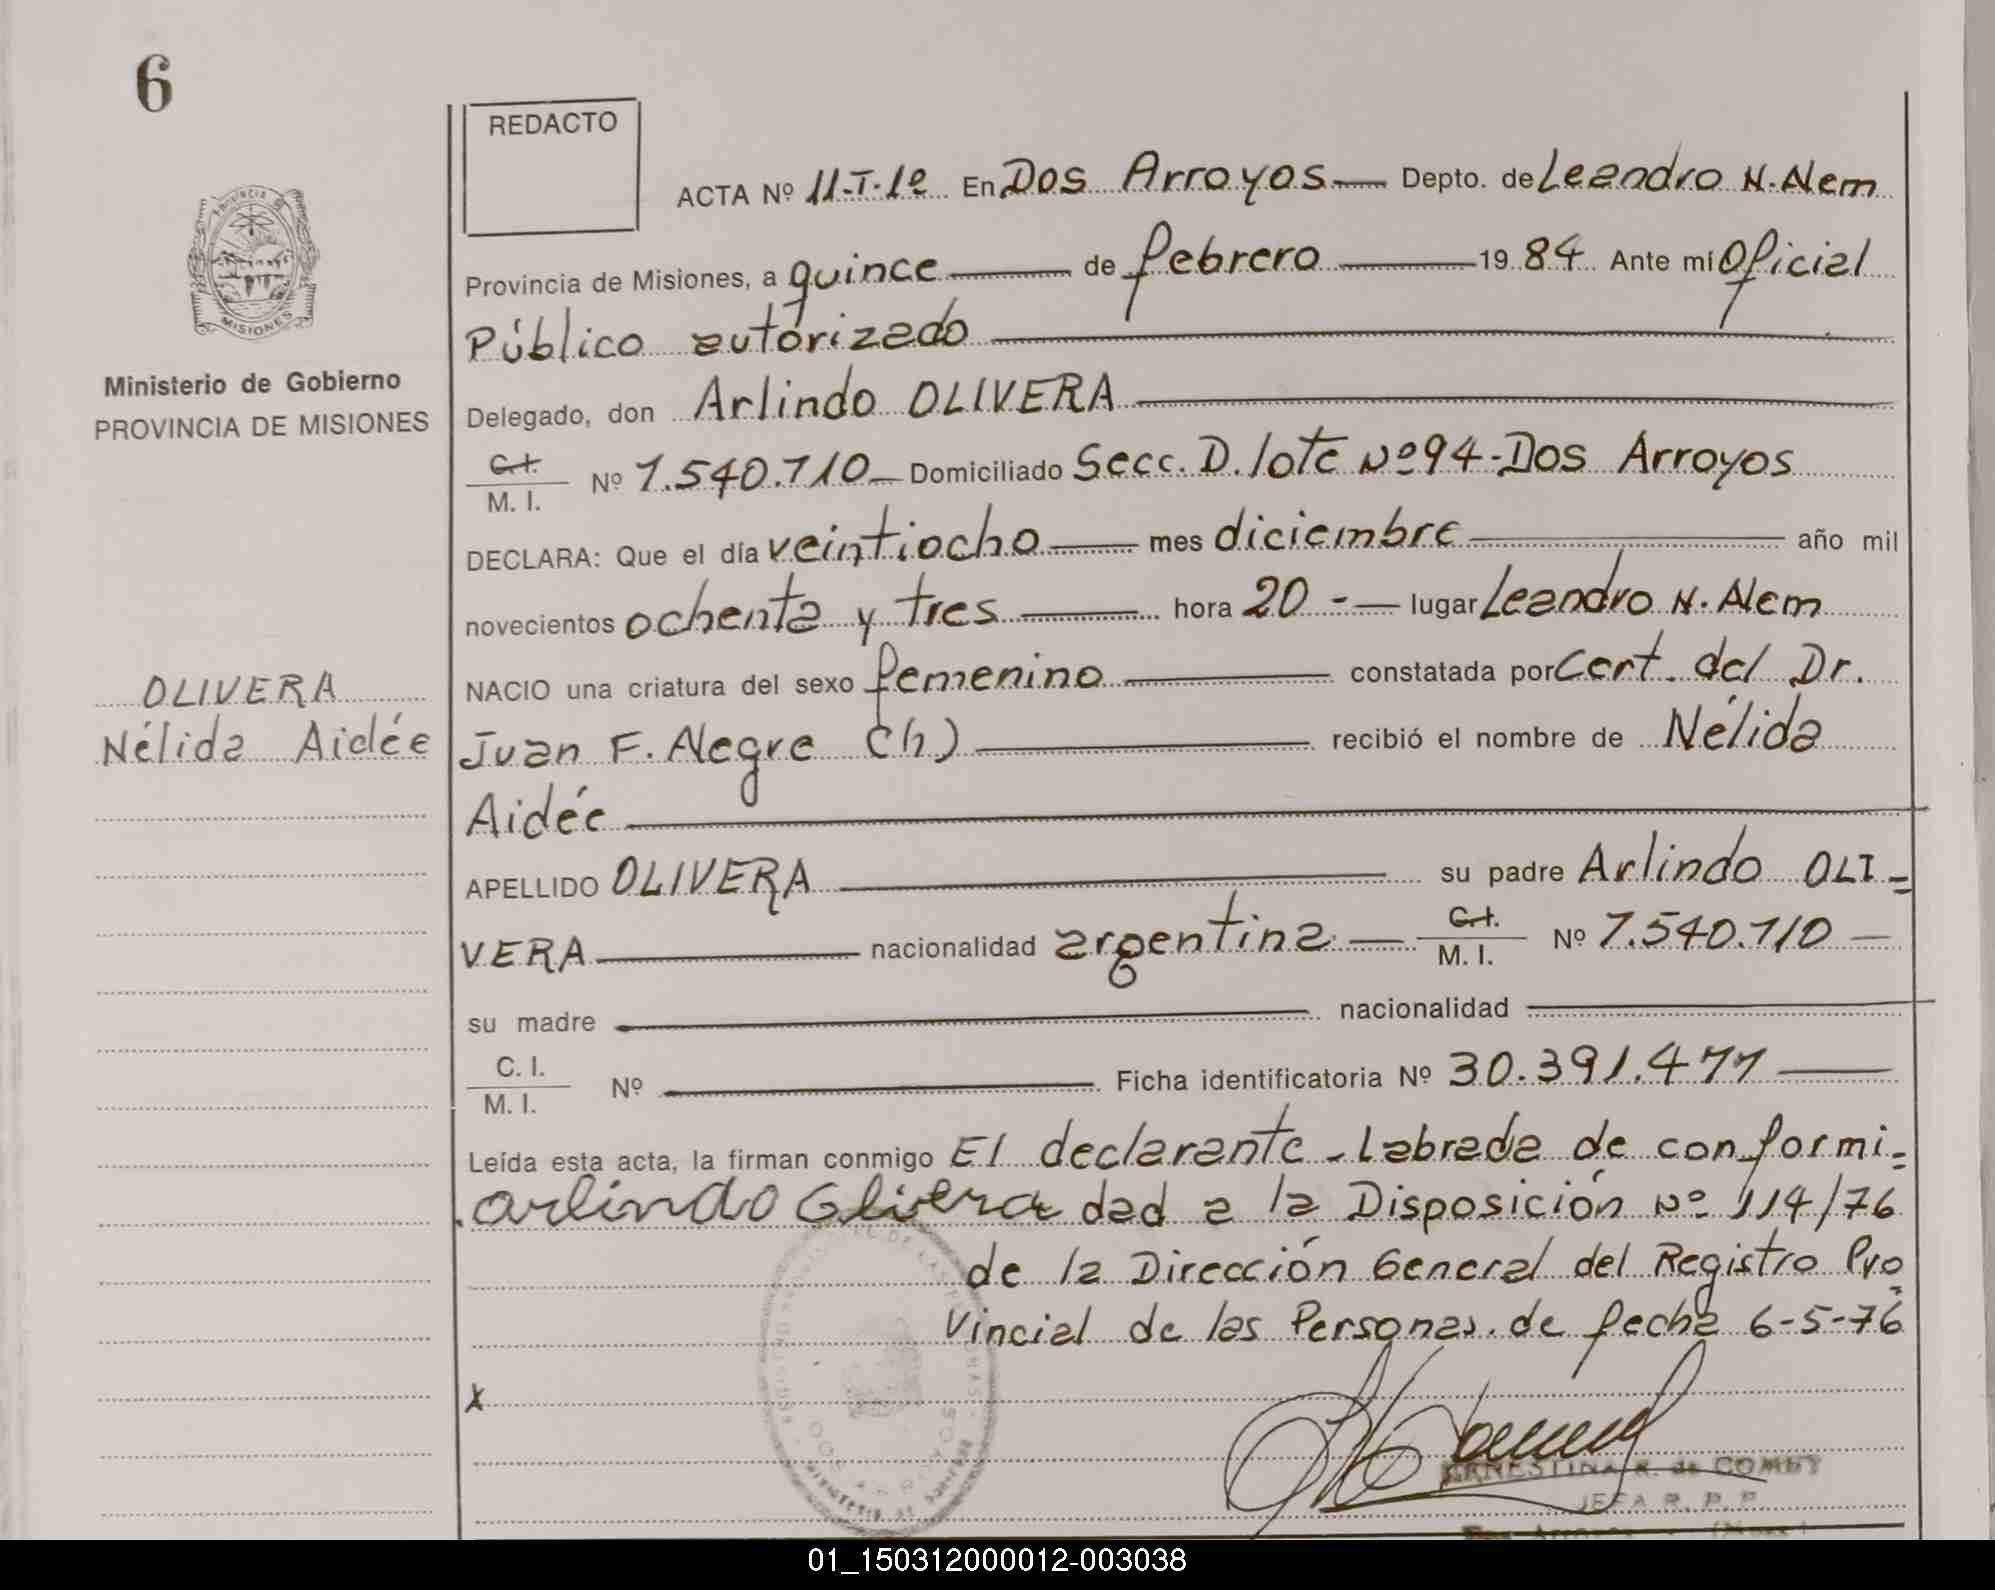 6
REDACTO
ACTA Nº 11-T-1º En Dos Arroyos Depto. de Leandro N. Alem
Provincia de Misiones, a quince de febrero 1984 Ante mí Oficial
Público autorizado
Delegado, don Arlindo OLIVERA
C.I. / M. I. Nº 7.540.710 Domiciliado Secc. D. lote Nº 94 - Dos Arroyos
DECLARA: Que el día veintiocho mes diciembre año mil
novecientos ochenta y tres hora 20 - lugar Leandro N. Alem
NACIO una criatura del sexo femenino constatada por Cert. del Dr.
Juan F. Alegre (h) recibió el nombre de Nélida
Aidée
APELLIDO OLIVERA su padre Arlindo OLI-
VERA nacionalidad argentina C.I. / M. I. Nº 7.540.710
su madre nacionalidad
C. I. / M. I. Nº Ficha identificatoria Nº 30.391.477
Leída esta acta, la firman conmigo El declarante - Labrada de conformi-
Arlindo Olivera dad a la Disposición Nº 114/76
de la Dirección General del Registro Pro
vincial de las Personas. de fecha 6-5-76
X
ERNESTINA R. de COMBY
JEFA R. P. P.
PROVINCIA DE
MISIONES
Ministerio de Gobierno
PROVINCIA DE MISIONES
OLIVERA
Nélida Aidée
DOS ARROYOS
01_150312000012-003038